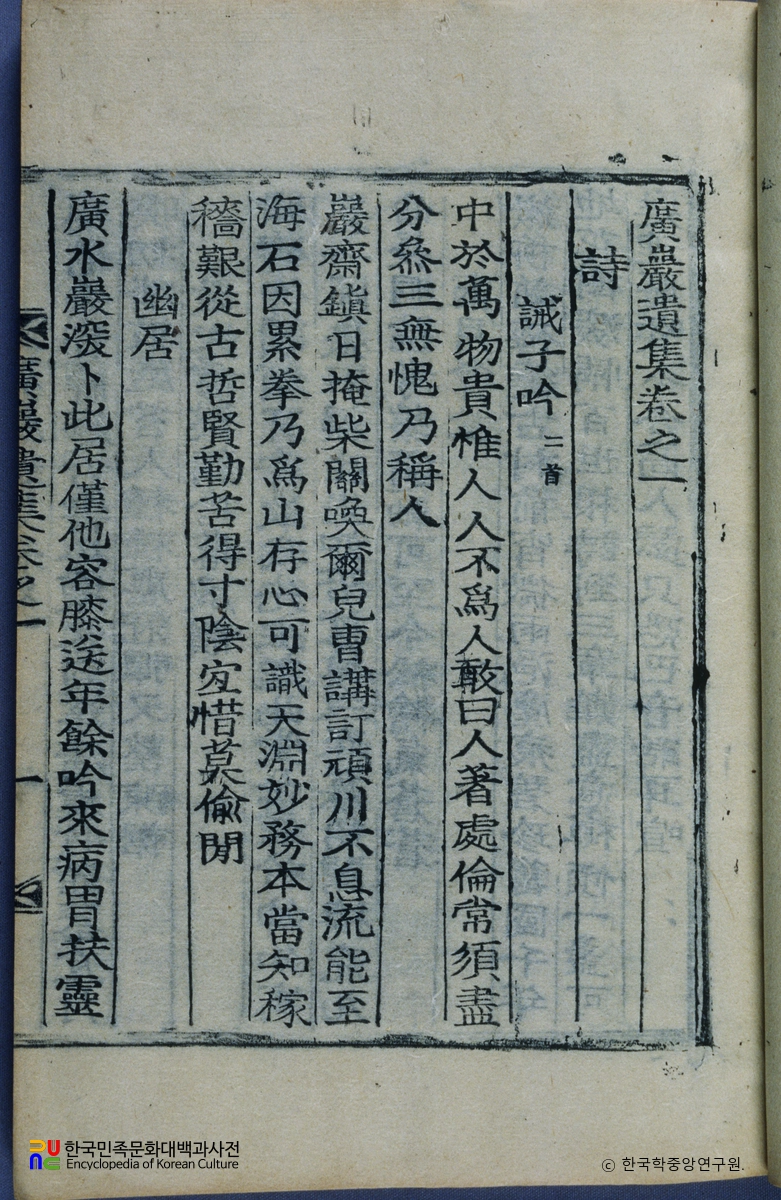 廣巖遺集卷之一
詩
誡子吟 二首
中於萬物貴惟人人不爲人敢曰人著處倫常須盡
分叅三無愧乃稱人
巖齋鎭日掩柴關喚爾兒曹講訂頑川不息流能至
海石因累拳乃爲山存心可識天淵妙務本當知稼
穡艱從古哲賢勤苦得寸陰宜惜莫偸閒
幽居
廣水巖深卜此居僅他容膝送年餘吟來病胃扶靈
廣巖遺集卷之一
一
한국민족문화대백과사전
Encyclopedia of Korean Culture
ⓒ 한국학중앙연구원.